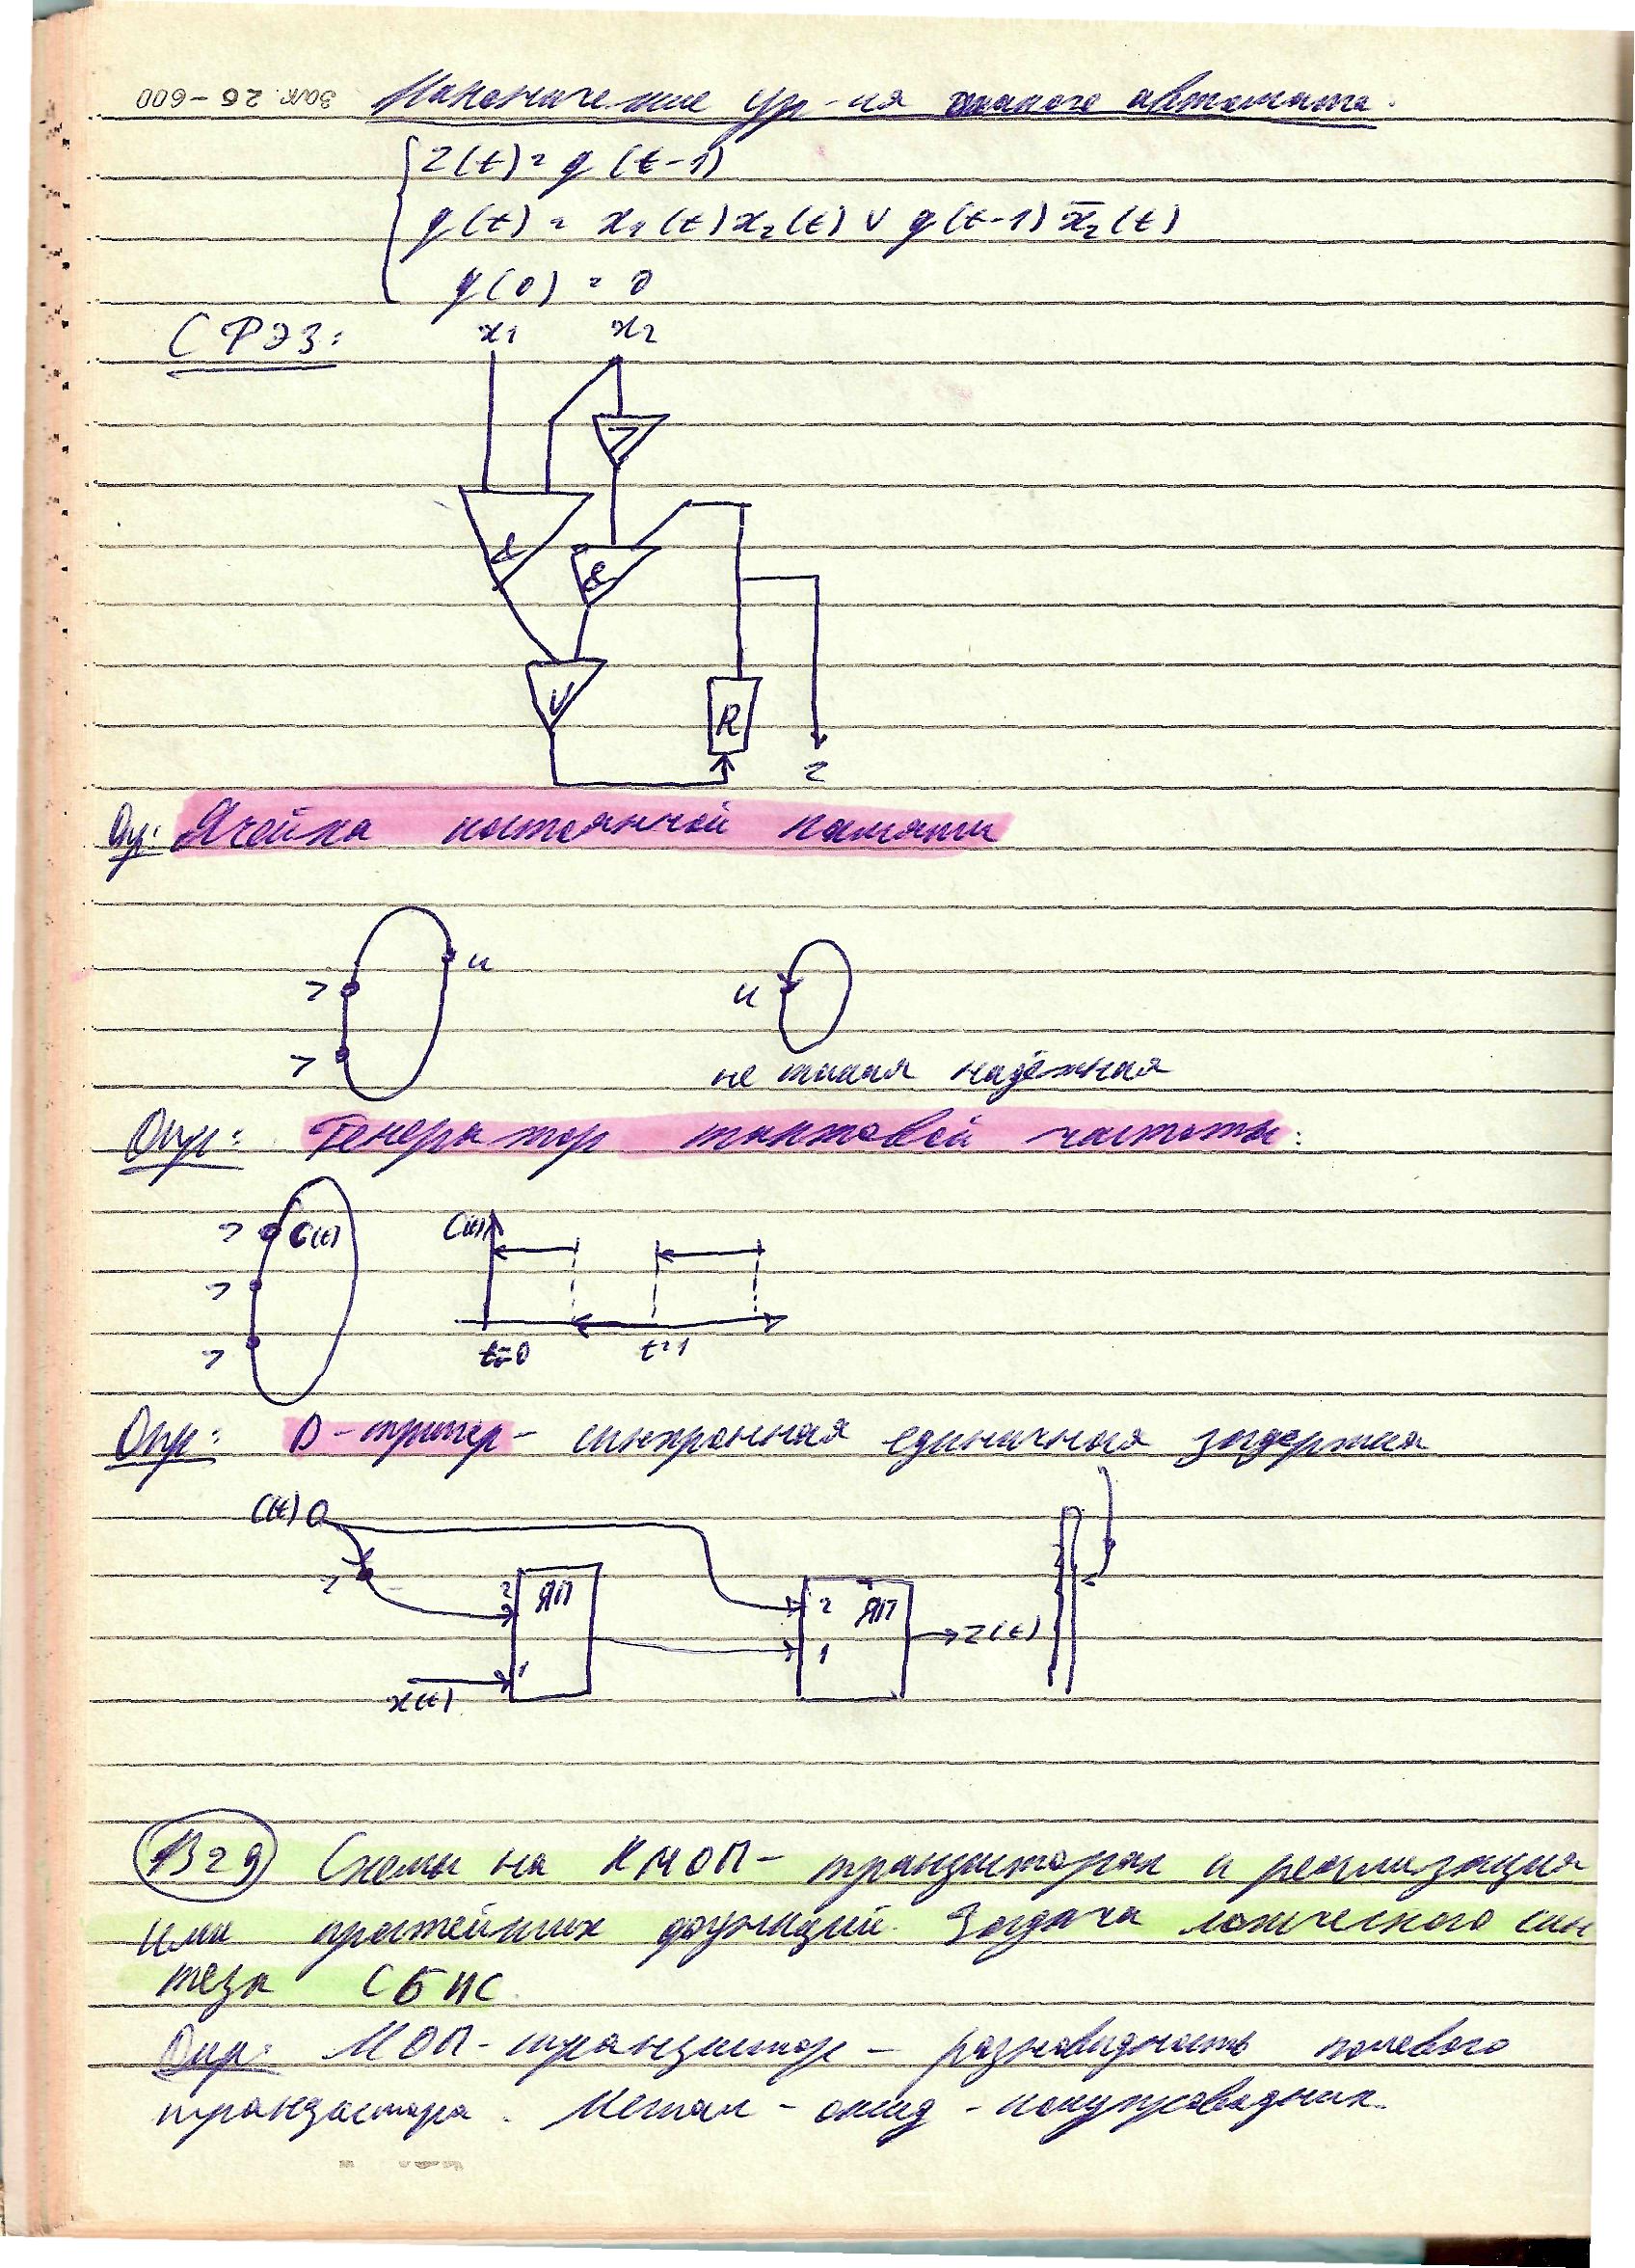 Зак. 26-600
Каноническое ур-ия такого автомата.
z(t) = q(t-1)
q(t) = x₁(t)x₂(t) ∨ q(t-1)x̄₂(t)
q(0) = 0
СФЭЗ: x₁ x₂
¬
&
&
V
R
z
Оп: Ячейка постоянной памяти
¬ u
¬
u
не такая надёжная
Опр: Генератор тактовой частоты:
¬ C(t)
¬
¬
C(t)
t=0 t=1
Опр: D-триггер - синхронная единичная задержка
C(t)
¬
2 ЯП
1
x(t)
2 ЯП
1
z(t)
В29 Схемы на КМОП-транзисторах и реализация
ими простейших функций. Задача логического син
теза СБИС.
Опр: МОП-транзистор - разновидность полевого
транзистора. Метал-оксид-полупроводник.